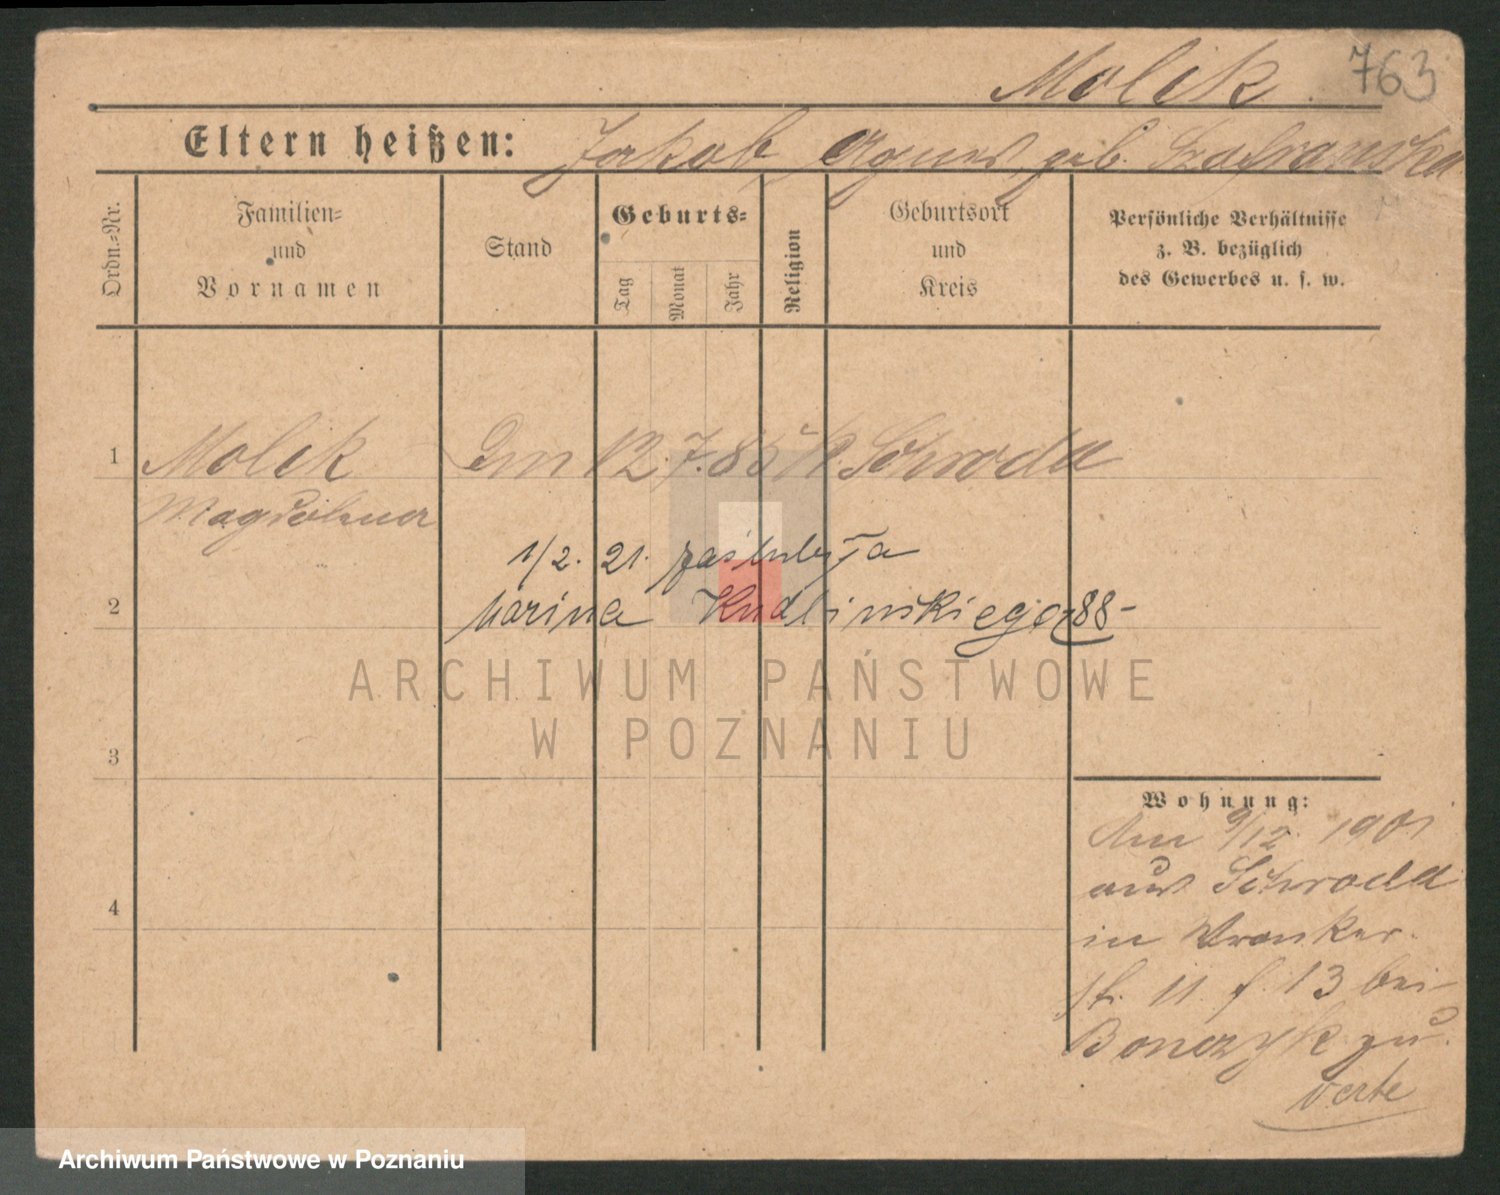 Molik 763
Eltern heißen: Jakob Agnes geb. Szafranska
Ordn.-Nr.
Familien-
und
Vornamen
Stand
Geburts-
Tag
Monat
Jahr
Religion
Geburtsort
und
Kreis
Persönliche Verhältnisse
z. B. bezüglich
des Gewerbes u. s. w.
1 Molik 12. 7. 85 k. Schroda
Magdalena
1/2. 21. zaślubyła
2 Marina Kudlinskiego 88-
ARCHIWUM PAŃSTWOWE
W POZNANIU
3
Wohnung:
Am 9/12. 1901
aus Schroda
4
in Wronker
st. 11 f. 13 bei
Bonczyk zu.
verte
Archiwum Państwowe w Poznaniu